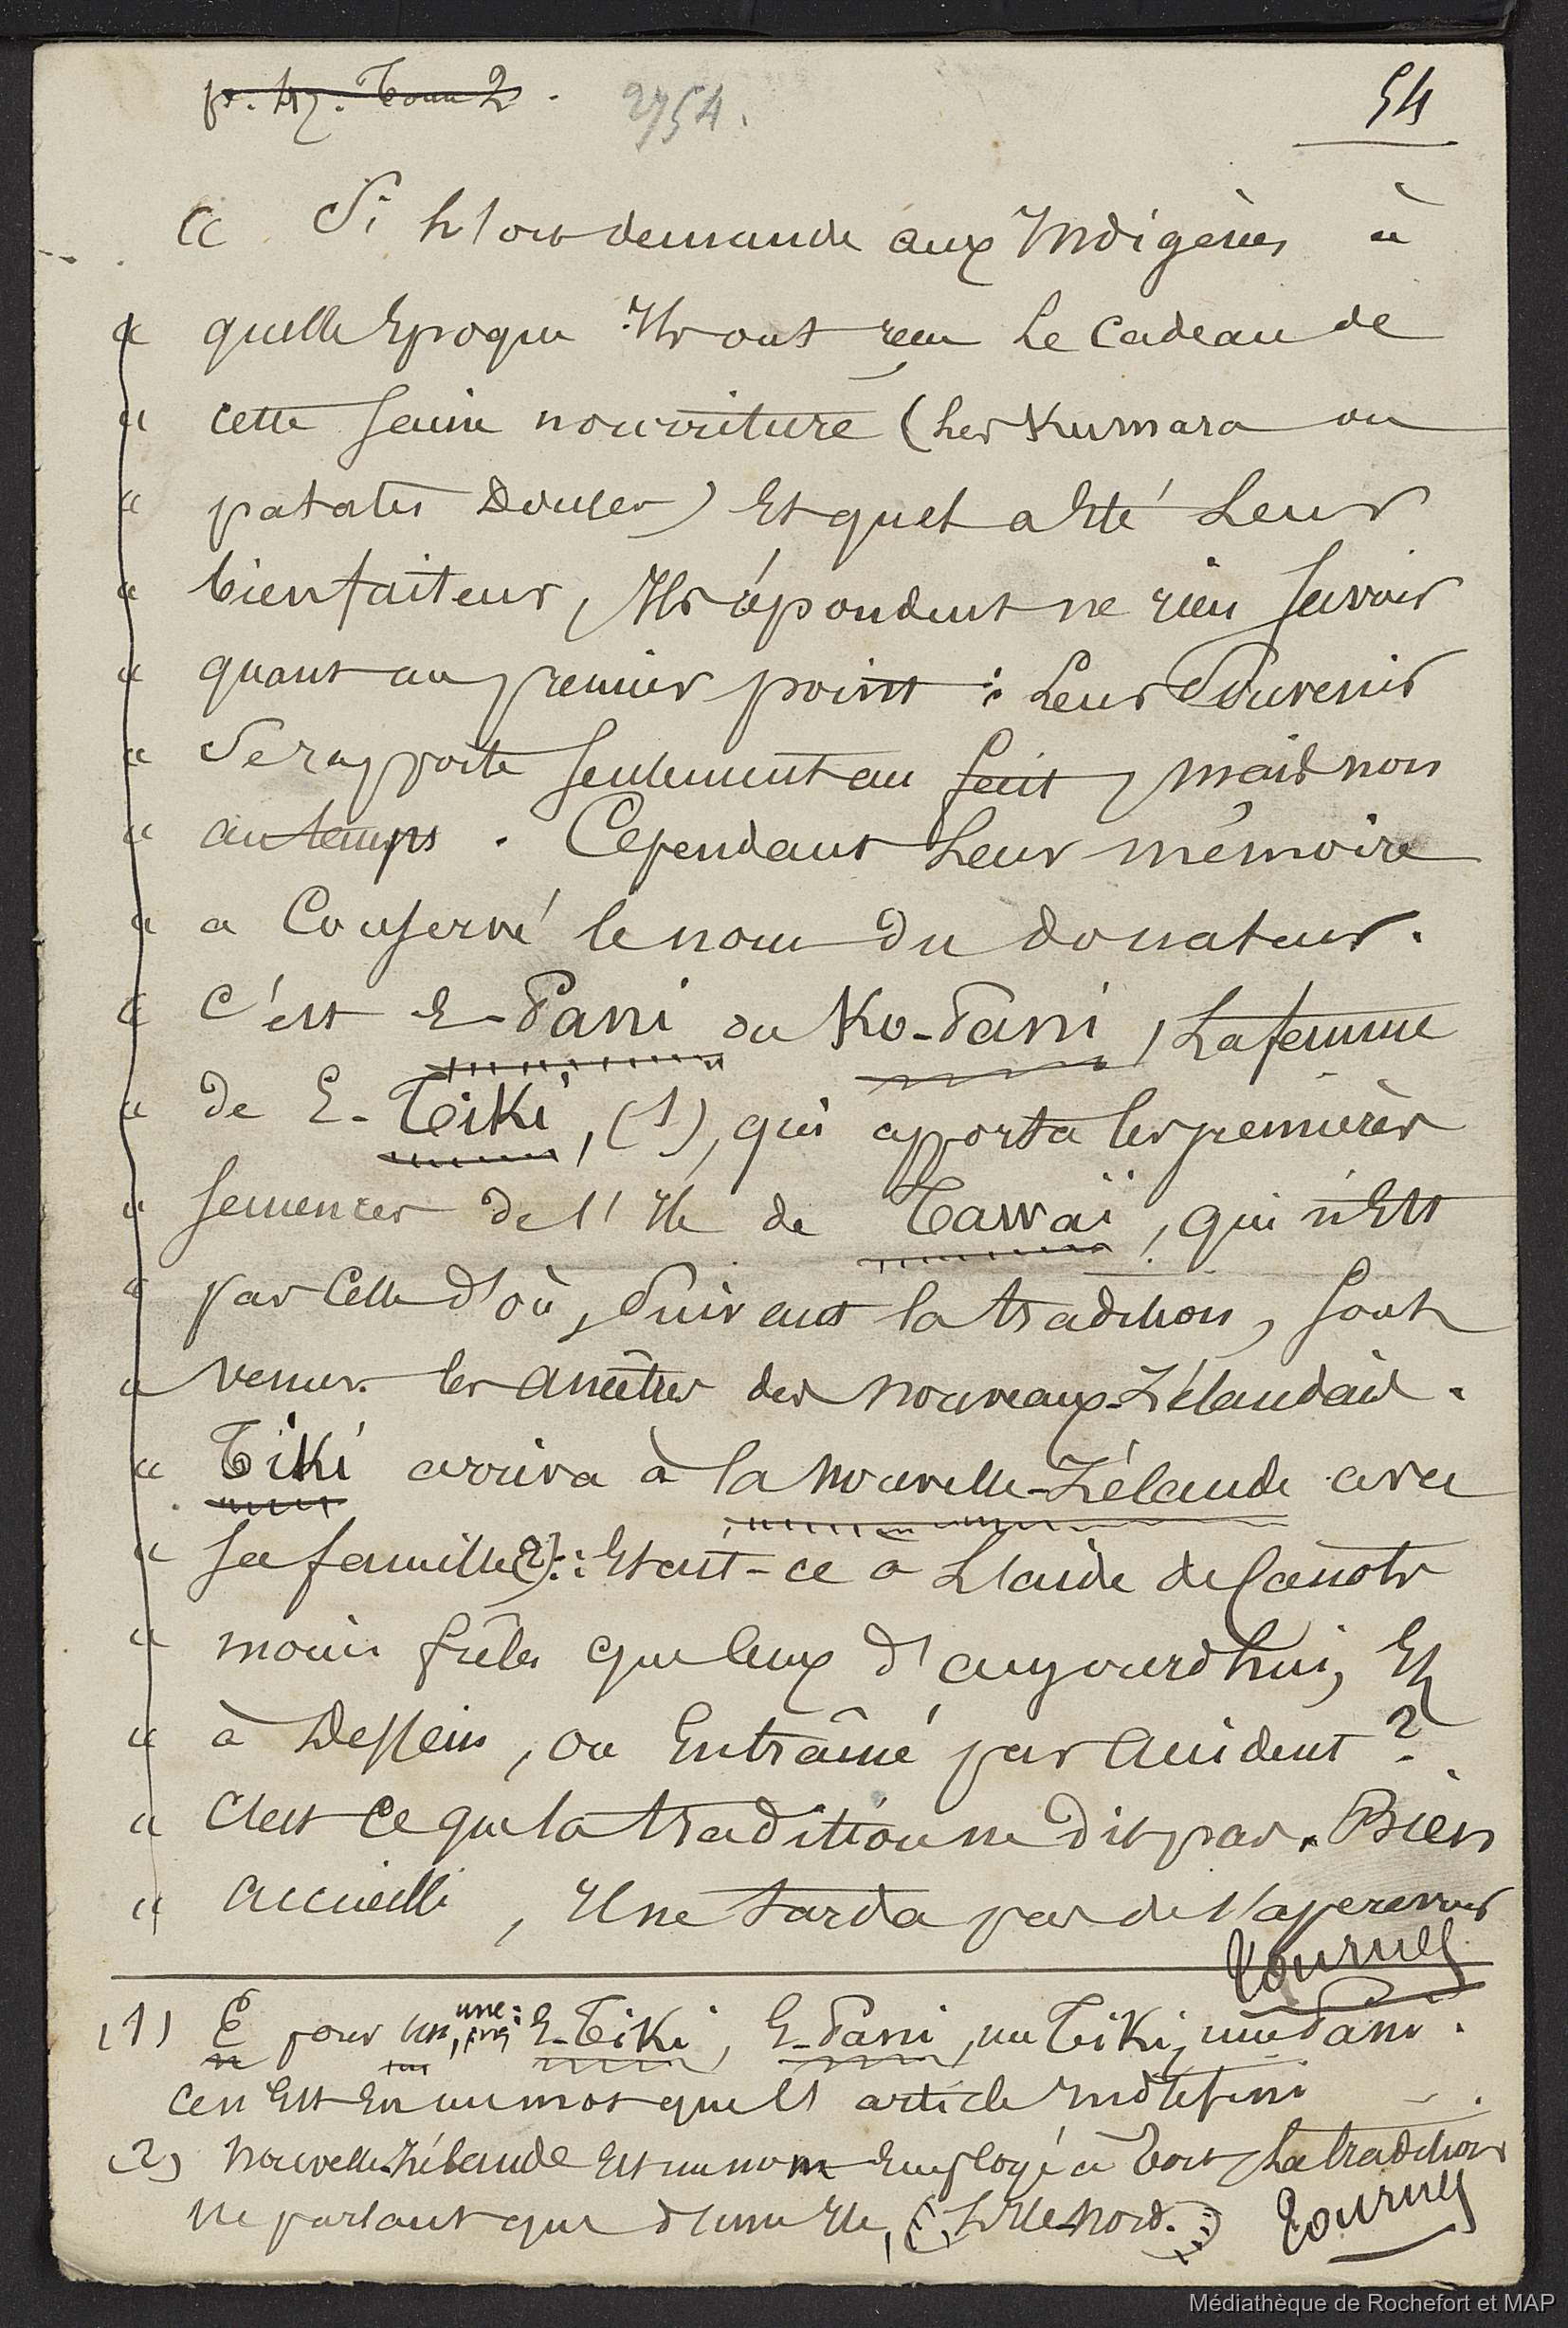 p. 47. Tome 2. 2754. 54
« Si L'on demande aux Indigènes à
« quelle Epoque Ils ont reçu Le Cadeau de
« cette saine nourriture (Les Kumara ou
« patates Douces) Et quel a Eté Leur
« bienfaiteur, Ils répondent ne rien savoir
« quant au premier point : Leur Souvenir
« Se rapporte seulement au fait, mais non
« au temps. Cependant Leur mémoire
« a Conservé le nom du donateur.
« C'est E-Pani ou Ko-Pani, La femme
« de E-Tiki, (1), qui apporta les premières
« semences de l'Ile de Tawaï, qui n'Est
« pas Celle d'où, Suivant la tradition, sont
« venus les ancêtres des nouveaux-Zélandais.
« Tiki arriva à la Nouvelle-Zélande avec
« sa famille (2) : Etait-ce à L'aide de Canots
« moins frêles que Ceux d'aujourd'hui, Et
« à Dessein, ou Entraîné par accident ?
« C'est Ce que la tradition ne dit pas. Bien
« accueilli, Il ne tarda pas de s'apercevoir
Tournez
(1) E pour un, une : E-Tiki, E-Pani, un Tiki, une Pani.
C'en Est En un mot que l'article Indéfini
(2) Nouvelle-Zélande Est un nom Employé à Tort, La tradition
ne parlant que d'une Ile, (L'Ile-Nord.)
Tournez
Médiathèque de Rochefort et MAP